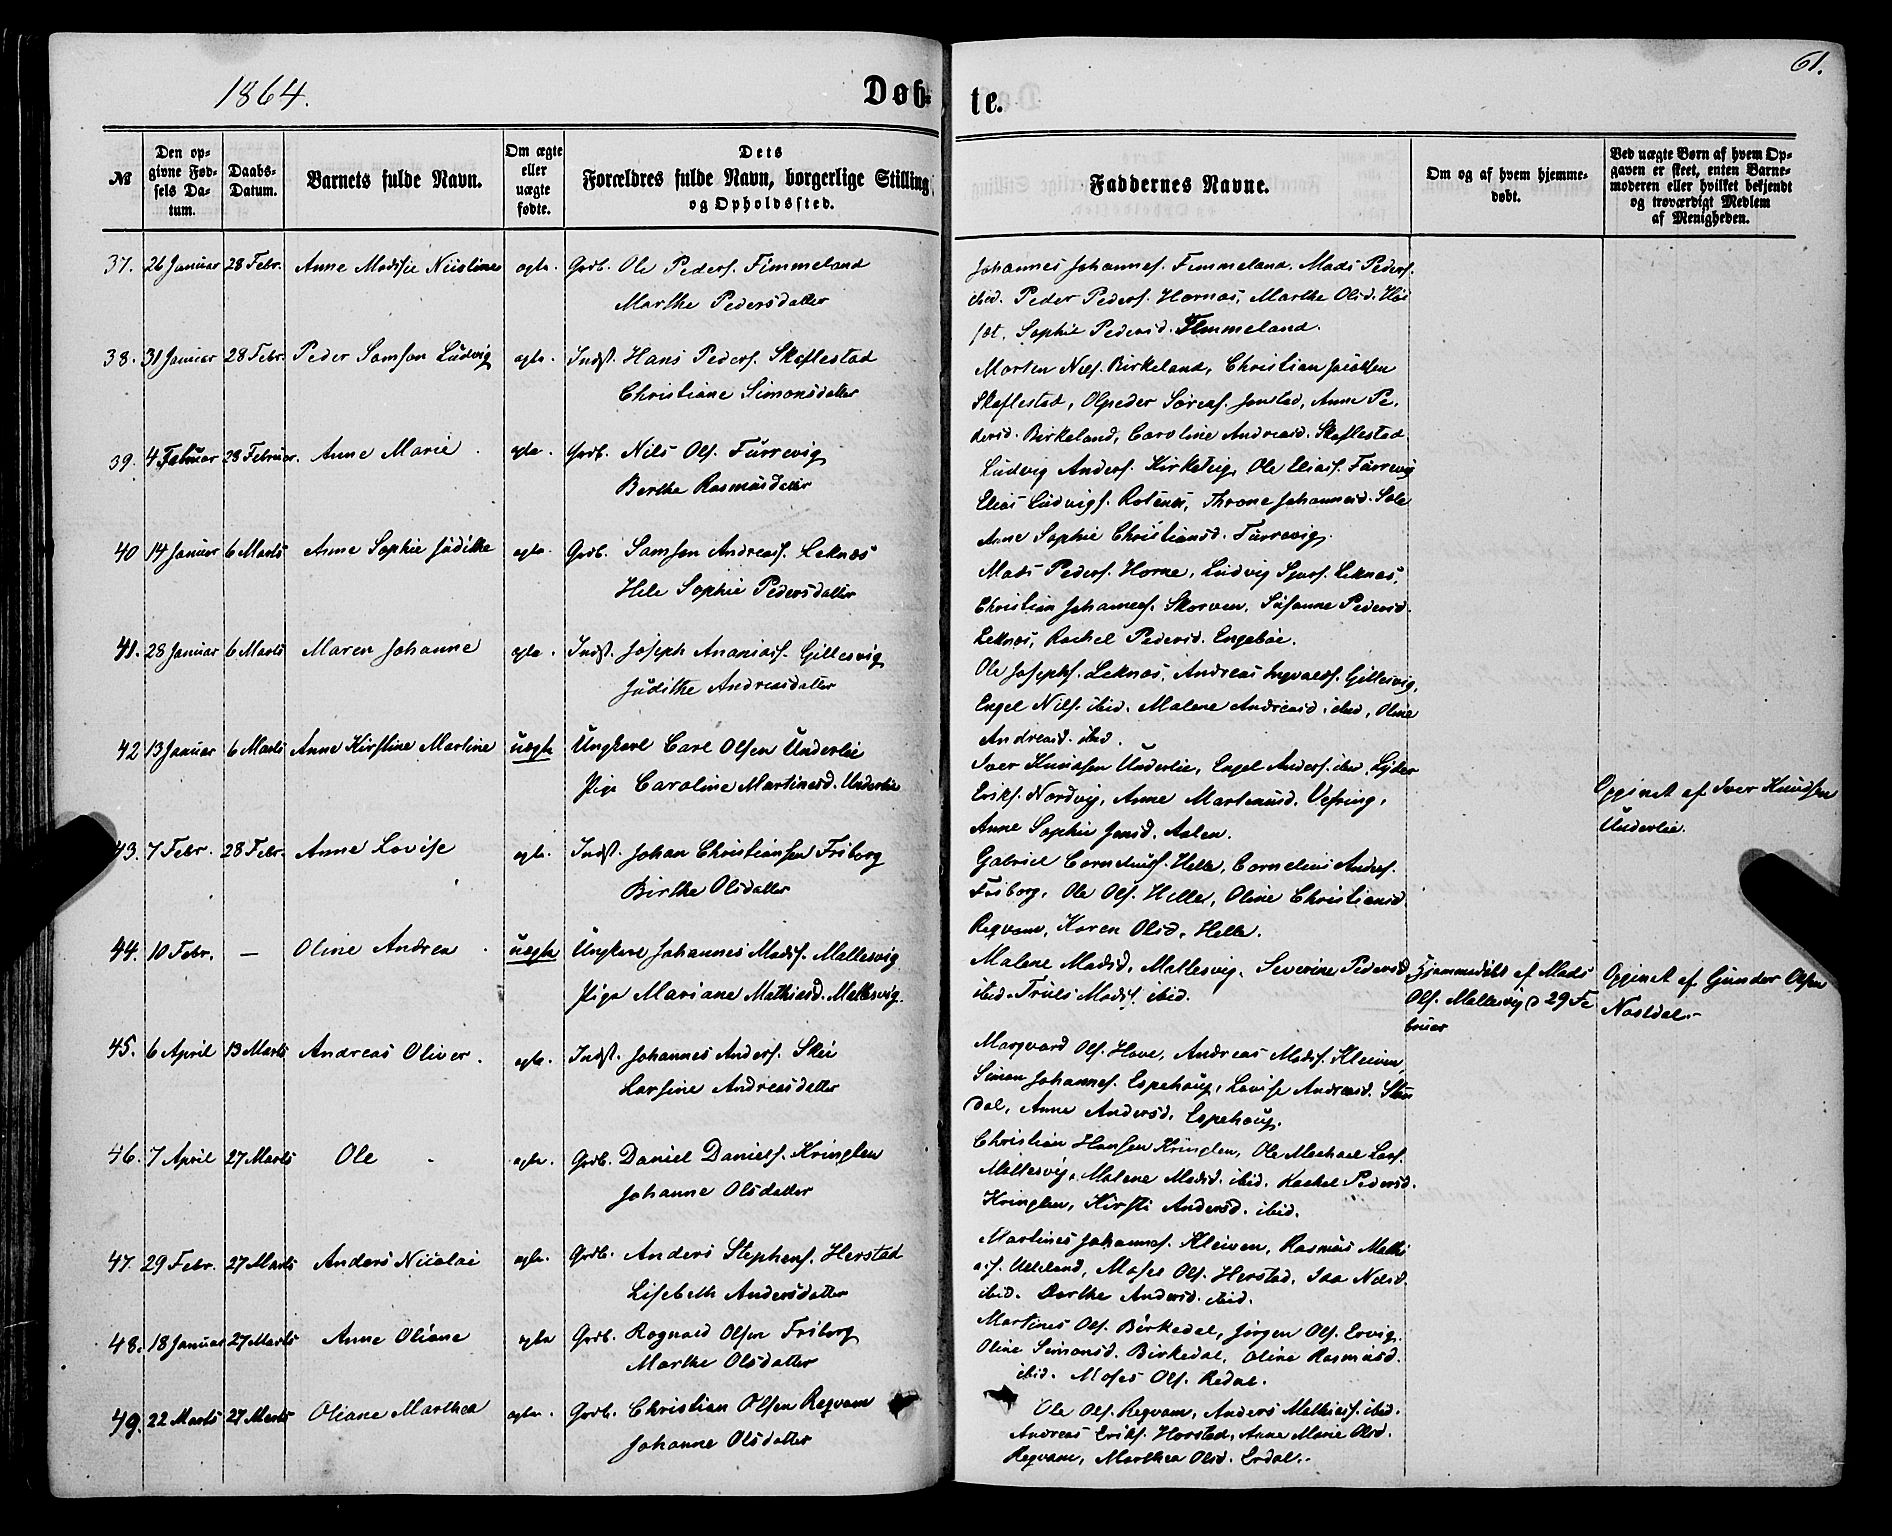 1864.
Døb-
te.
61.
№
Den op-
givne Fød-
sels Da-
tum.
Daabs-
Datum.
Barnets fulde Navn.
Om ægte
eller
uægte
fødte.
Dets
Forældres fulde Navn, borgerlige Stilling
og Opholdssted.
Faddernes Navne.
Om og af hvem hjemme-
døbt.
Ved uægte Børn af hvem Op-
gaven er skeet, enten Barne-
moderen eller hvilket bekjendt
og troværdigt Medlem
af Menigheden.
37. 26 Januar 28 Febr. Anne Madsie Nicoline ægte. Grdb. Ole Peders. Fimmeland
Marthe Pedersdatter
Johannes Johannes. Fimmeland, Mads Peders.
ibid. Peder Peders. Hornæs, Marthe Olsd.
Sophie Pedersd. Fimmeland.
38. 31 Januar 28 Febr. Peder Samson Ludvig ægte. Indst. Hans Peders. Skaflestad
Christiane Simonsdatter
Morten Nils. Birkeland, Christian Jacobsen
Skaflestad, Olpeder Sørens. Jonstad, Anne Pe-
dersd. Birkeland, Caroline Andreasd. Skaflestad
39. 4 Februar 28 Februar. Anne Marie. ægte. Grdb. Nils Ols. Furrevig
Berthe Rasmusdatter
Ludvig Anders. Kirketeig, Ole Elias. Furrevig
Elias Ludvigs. Rotenes, Throne Johannesd. Sole
Anne Sophie Christiansd. Furrevig.
40 14 Januar 6 Marts Anne Sophie Judithe ægte. Grdb. Samson Andreas. Leknæs
Hele Sophie Pedersdatter
Mads Peders. Horne, Ludvig Sjurs. Leknæs,
Christian Johannes. Skorven, Susanne Pedersd.
Leknæs, Rachel Pedersd. Engebøe.
41. 28 Januar 6 Marts Maren Johanne ægte. Indst. Joseph Ananias. Gillesvig
Judithe Andreasdatter
Ole Josephs. Leknæs, Andreas Ingvalds. Gillesvig,
Engel Nils. ibid. Malene Andreasd. ibid, Oline
Andreasd. ibid.
42 13 Januar 6 Marts Anne Kirstine Martine uægte Ungkarl Carl Olsen Underlie
Pige Caroline Martinusd. Underlie
Iver Knudsen Underlie, Engel Anders. ibid, Lyder
Eriks. Nordvig, Anne Martinusd. Vefring,
Anne Sophie Jensd. Aalen.
Opgivet af Iver Knudsen
Underlie.
43. 7 Febr. 28 Febr. Anne Lovise ægte. Indst. Johan Christiansen Friborg
Birthe Olsdatter
Gabriel Cornelius. Helle, Cornelius Anders.
Friborg, Ole Ols. Helle, Oline Christiansd.
Reqvam, Karen Olsd. Helle.
44. 10 Febr. — Oline Andrea. uægte Ungkarl Johannes Mads. Mallesvig
Pige Mariane Mathiasd. Mallesvig.
Malene Madsd. Mallesvig, Severine Pedersd.
ibid. Truls Mads. ibid.
Hjemmedøbt af Mads
Ols. Mallesvig d 29 Fe
bruar
Opgivet af Gunder Olsen
Nastdal.
45. 6 April 13 Marts Andreas Oliver. ægte. Indst. Johannes Anders. Skei
Larsine Andreasdatter
Marqvard Ols. Hove, Andreas Mads. Kleiven,
Simon Johannes. Espehoug, Lovise Andreasd.
dal, Anne Andersd. Espehoug.
46. 7 April 27 Marts Ole - ægte. Grdb. Daniel Daniels. Kringlen
Johanne Olsdatter
Christian Hansen Kringlen, Ole Mechael Lars.
Mallesvig, Malene Madsd. ibid. Rachel Pedersd.
Kringlen, Kirsti Andersd. ibid.
47. 29 Febr. 27 Marts Anders Nicolai ægte. Grdb. Anders Stephens. Herstad
Lisebeth Andersdatter
Martines Johannes. Kleiven, Rasmus Mathi
as. Moses Ols. Herstad, Ida Nilsd.
ibid. Dorthe Andersd. ibid.
48. 18 Januar 27 Marts Anne Oliane ægte Grdb. Rognald Olsen Friborg
Marthe Olsdatter
Martines Ols. Birkedal, Jørgen Ols. Ervig,
Oline Simonsd. Birkedal, Oline Rasmusd.
ibid. Moses Ols. Redal.
49. 22 Marts 27 Marts Oliane Marthea ægte. Grdb. Christian Olsen Reqvam
Johanne Olsdatter
Ole Ols. Reqvam, Anders Mathias. ibid.
Andreas Eriks. Herstad, Anne Marie Olsd.
Reqvam, Marthea Olsd. Erdal.